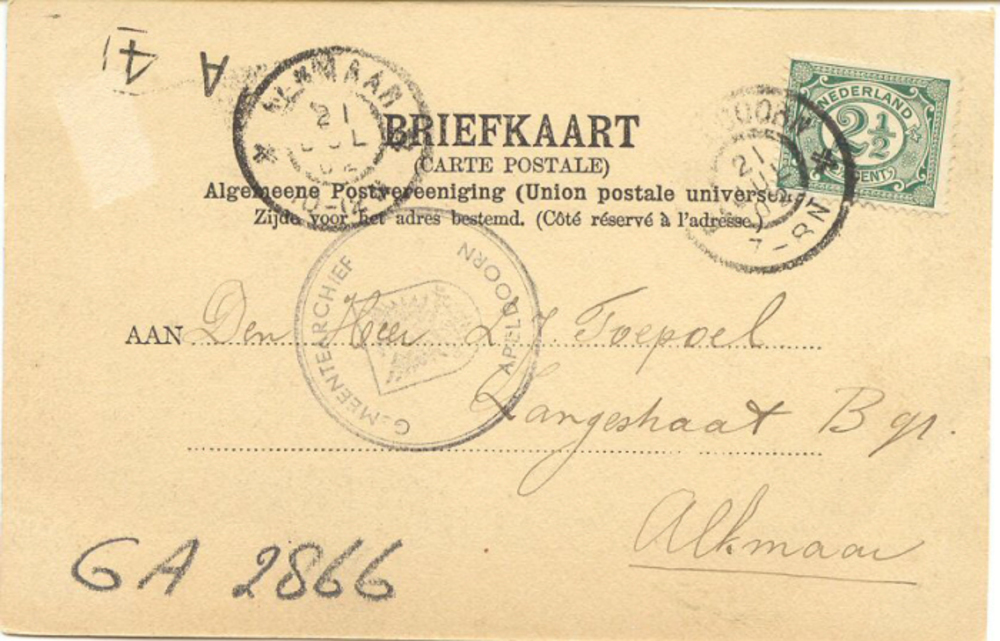 A 41
ALKMAAR
21
JUL
02
BRIEFKAART
(CARTE POSTALE)
Algemeene Postvereeniging (Union postale universelle)
Zijde voor het adres bestemd. (Côté réservé à l'adresse.)
NEDERLAND
2½
CENT
DOORN
21
7-8N
GEMEENTEARCHIEF APELDOORN
AAN Den Heer L. J. Toepoel
Langestraat B 91.
Alkmaar
GA 2866